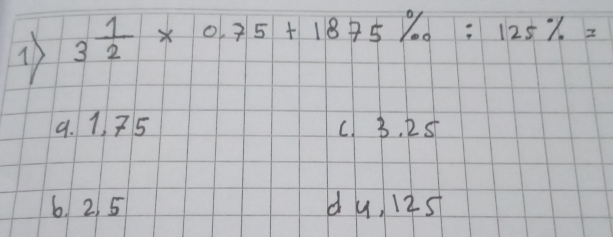 1) 3 1/2 × 0.75 + 1875‰ : 125% =
a. 1,75
c. 3.25
b. 2,5
d 4,125